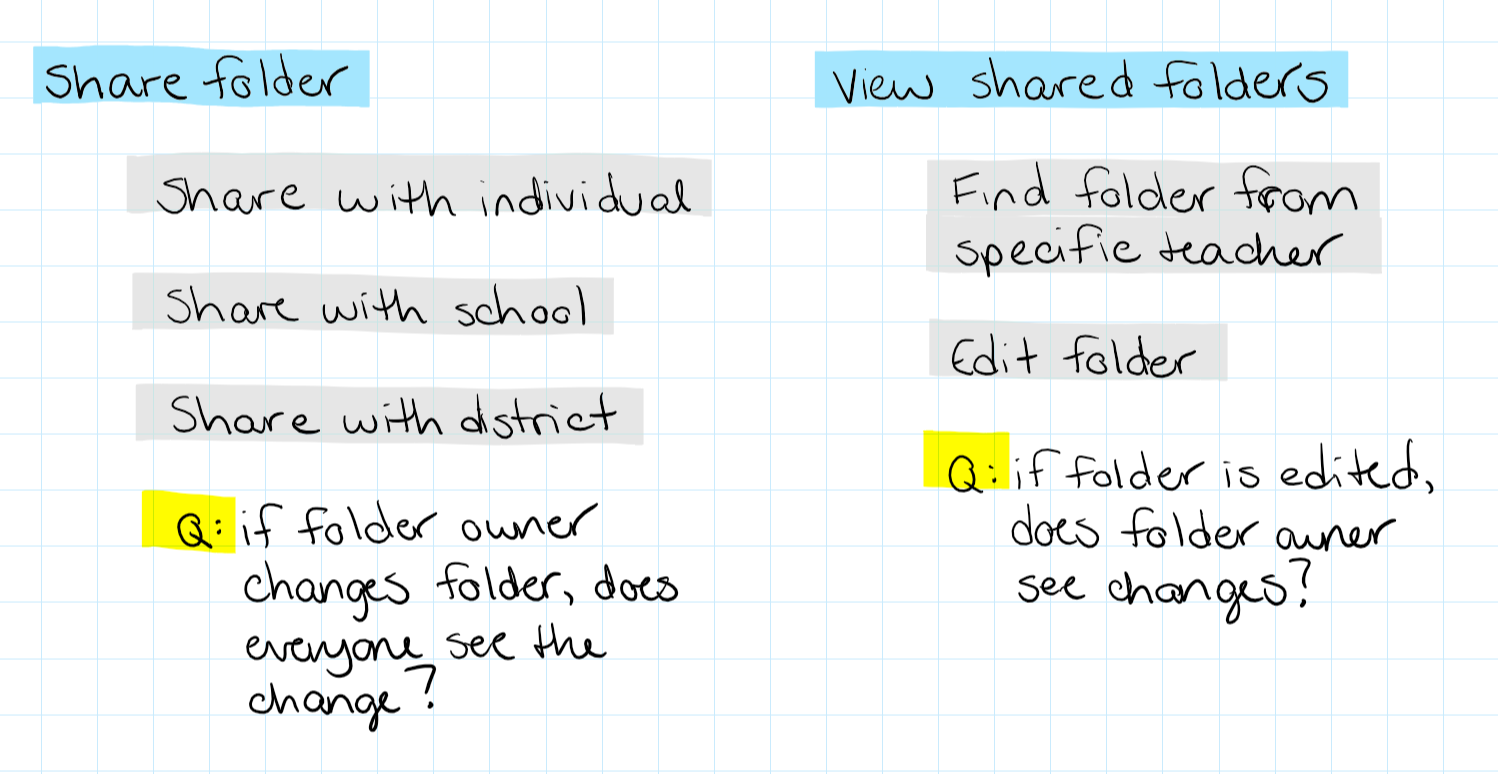 Share folder
Share with individual
Share with school
Share with district
Q: if folder owner
changes folder, does
everyone see the
change?
View shared folders
Find folder from
specific teacher
Edit folder
Q: if folder is edited,
does folder owner
see changes?